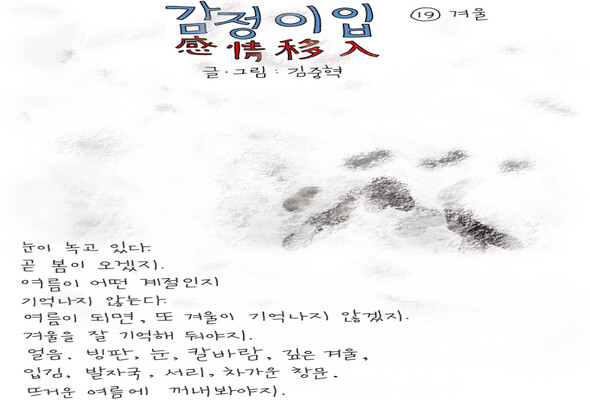 감정이입
⑲ 겨울
感情移入
글·그림 : 김중혁
눈이 녹고 있다.
곧 봄이 오겠지.
여름이 어떤 계절인지
기억나지 않는다.
여름이 되면, 또 겨울이 기억나지 않겠지.
겨울을 잘 기억해 둬야지.
얼음, 빙판, 눈, 칼바람, 깊은 겨울,
입김, 발자국, 서리, 차가운 창문.
뜨거운 여름에 꺼내봐야지.